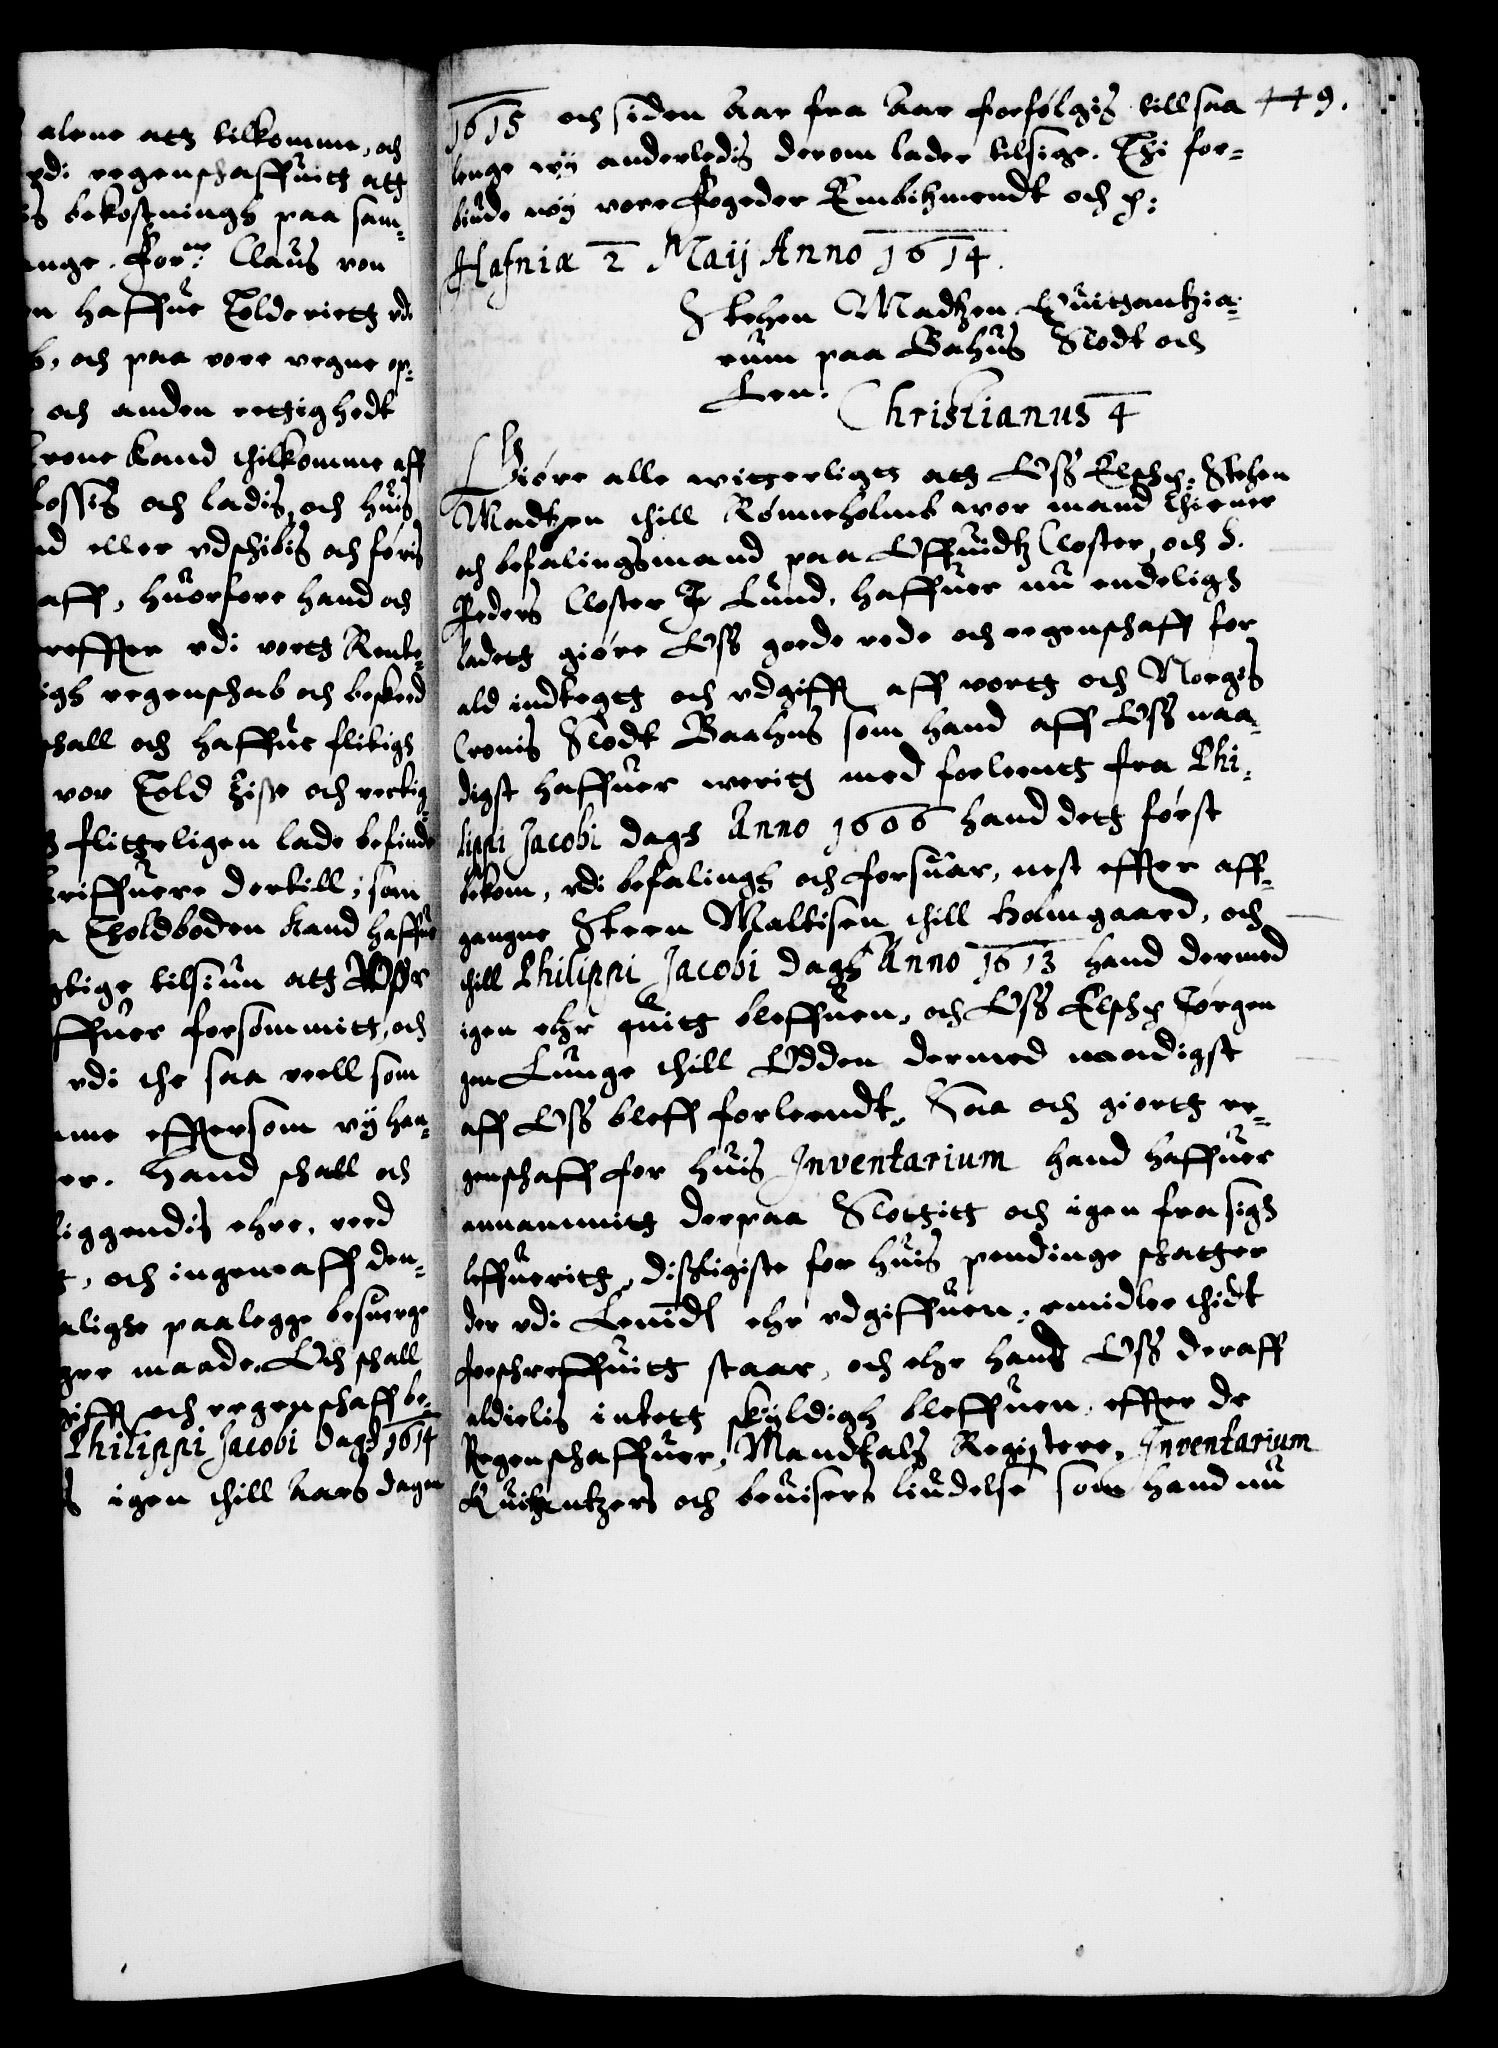 alene att tilkomme, och
udi regenschaffuitt att
bekostningh paa sam-
Claus von
haffue Tolderiett udi
och paa vore vegne op-
och anden rettighedt
krone kand thilkomme aff
lossis och ladis, och huis
eller udschibis och føris
aff, huorfore hand och
udi vortt Rente-
regenschab och beskeed
schall och haffue flitigh
vor Told Zisse och rettig-
flitteligen lade befinde
schriffuere dertill, som
Tholdboden kand haffue
tilsiun att
forsømmitt, och
udi the saa vell som
effttersom vy haa-
hand schall och
liggendis ehre, veed
och ingen aff den-
paalegge besuerge
maade. Och schall
och regenschaff be-
Philippi Jacobi dagh 1614
igen thill Aars dagen
449.
1615 och siden Aar fra Aar forfølgis till saa
lenge wy anderledis derom lader tilsige. Thi for-
biude wy vore Fogeder Embitzmendt och p:
Hafniæ 2 Maij Anno 1614.
Stehen Madtzen Quitzantzia-
rum paa Bahus Slodt och
Len.
Christianus 4
Giøre alle witterligtt att Oss Elsch: Stehen
Madtzen thill Rønneholmb wor mand thiener
och befalingsmand paa Offuidtz Closter, och S.
Peders Closter I Lund, haffuer nu endeligh
ladett giøre Oss goede rede och regenschaff for
ald indtegtt och udgifft aff vortt och Norgis
Cronis Slodt Baahus som hand aff Oss naa-
digst haffuer weritt med forleentt fra Phi-
lippi Jacobi dagh Anno 1606 hand dett først
bekom, udi befalingh och forsuar, nest effter aff-
gangne Steen Maltisen thill Holmgaard, och
thill Philippi Jacobi dagh Anno 1613 hand dermed
igen ehr quitt bleffuen, och Oss Elsch Jørgen
gen Lunge thill Odden dermed naadigst
aff Oss bleff forleendt, Saa och giortt re-
genschaff for huis Inventarium hand haffuer
annammitt derpaa Slottitt och igen fra sigh
leffueritt, dissligiste for huis pendinge schatter
der udi Lenidt ehr udgiffuen, emidler thidt
forschreffuitt staar, och ehr hand Oss deraff
aldielis intett skyldigh bleffuen, effter de
Regenschaffuer, Mandtals Registere, Inventarium
Quitzantzers och beuisers liudelse som hand nu